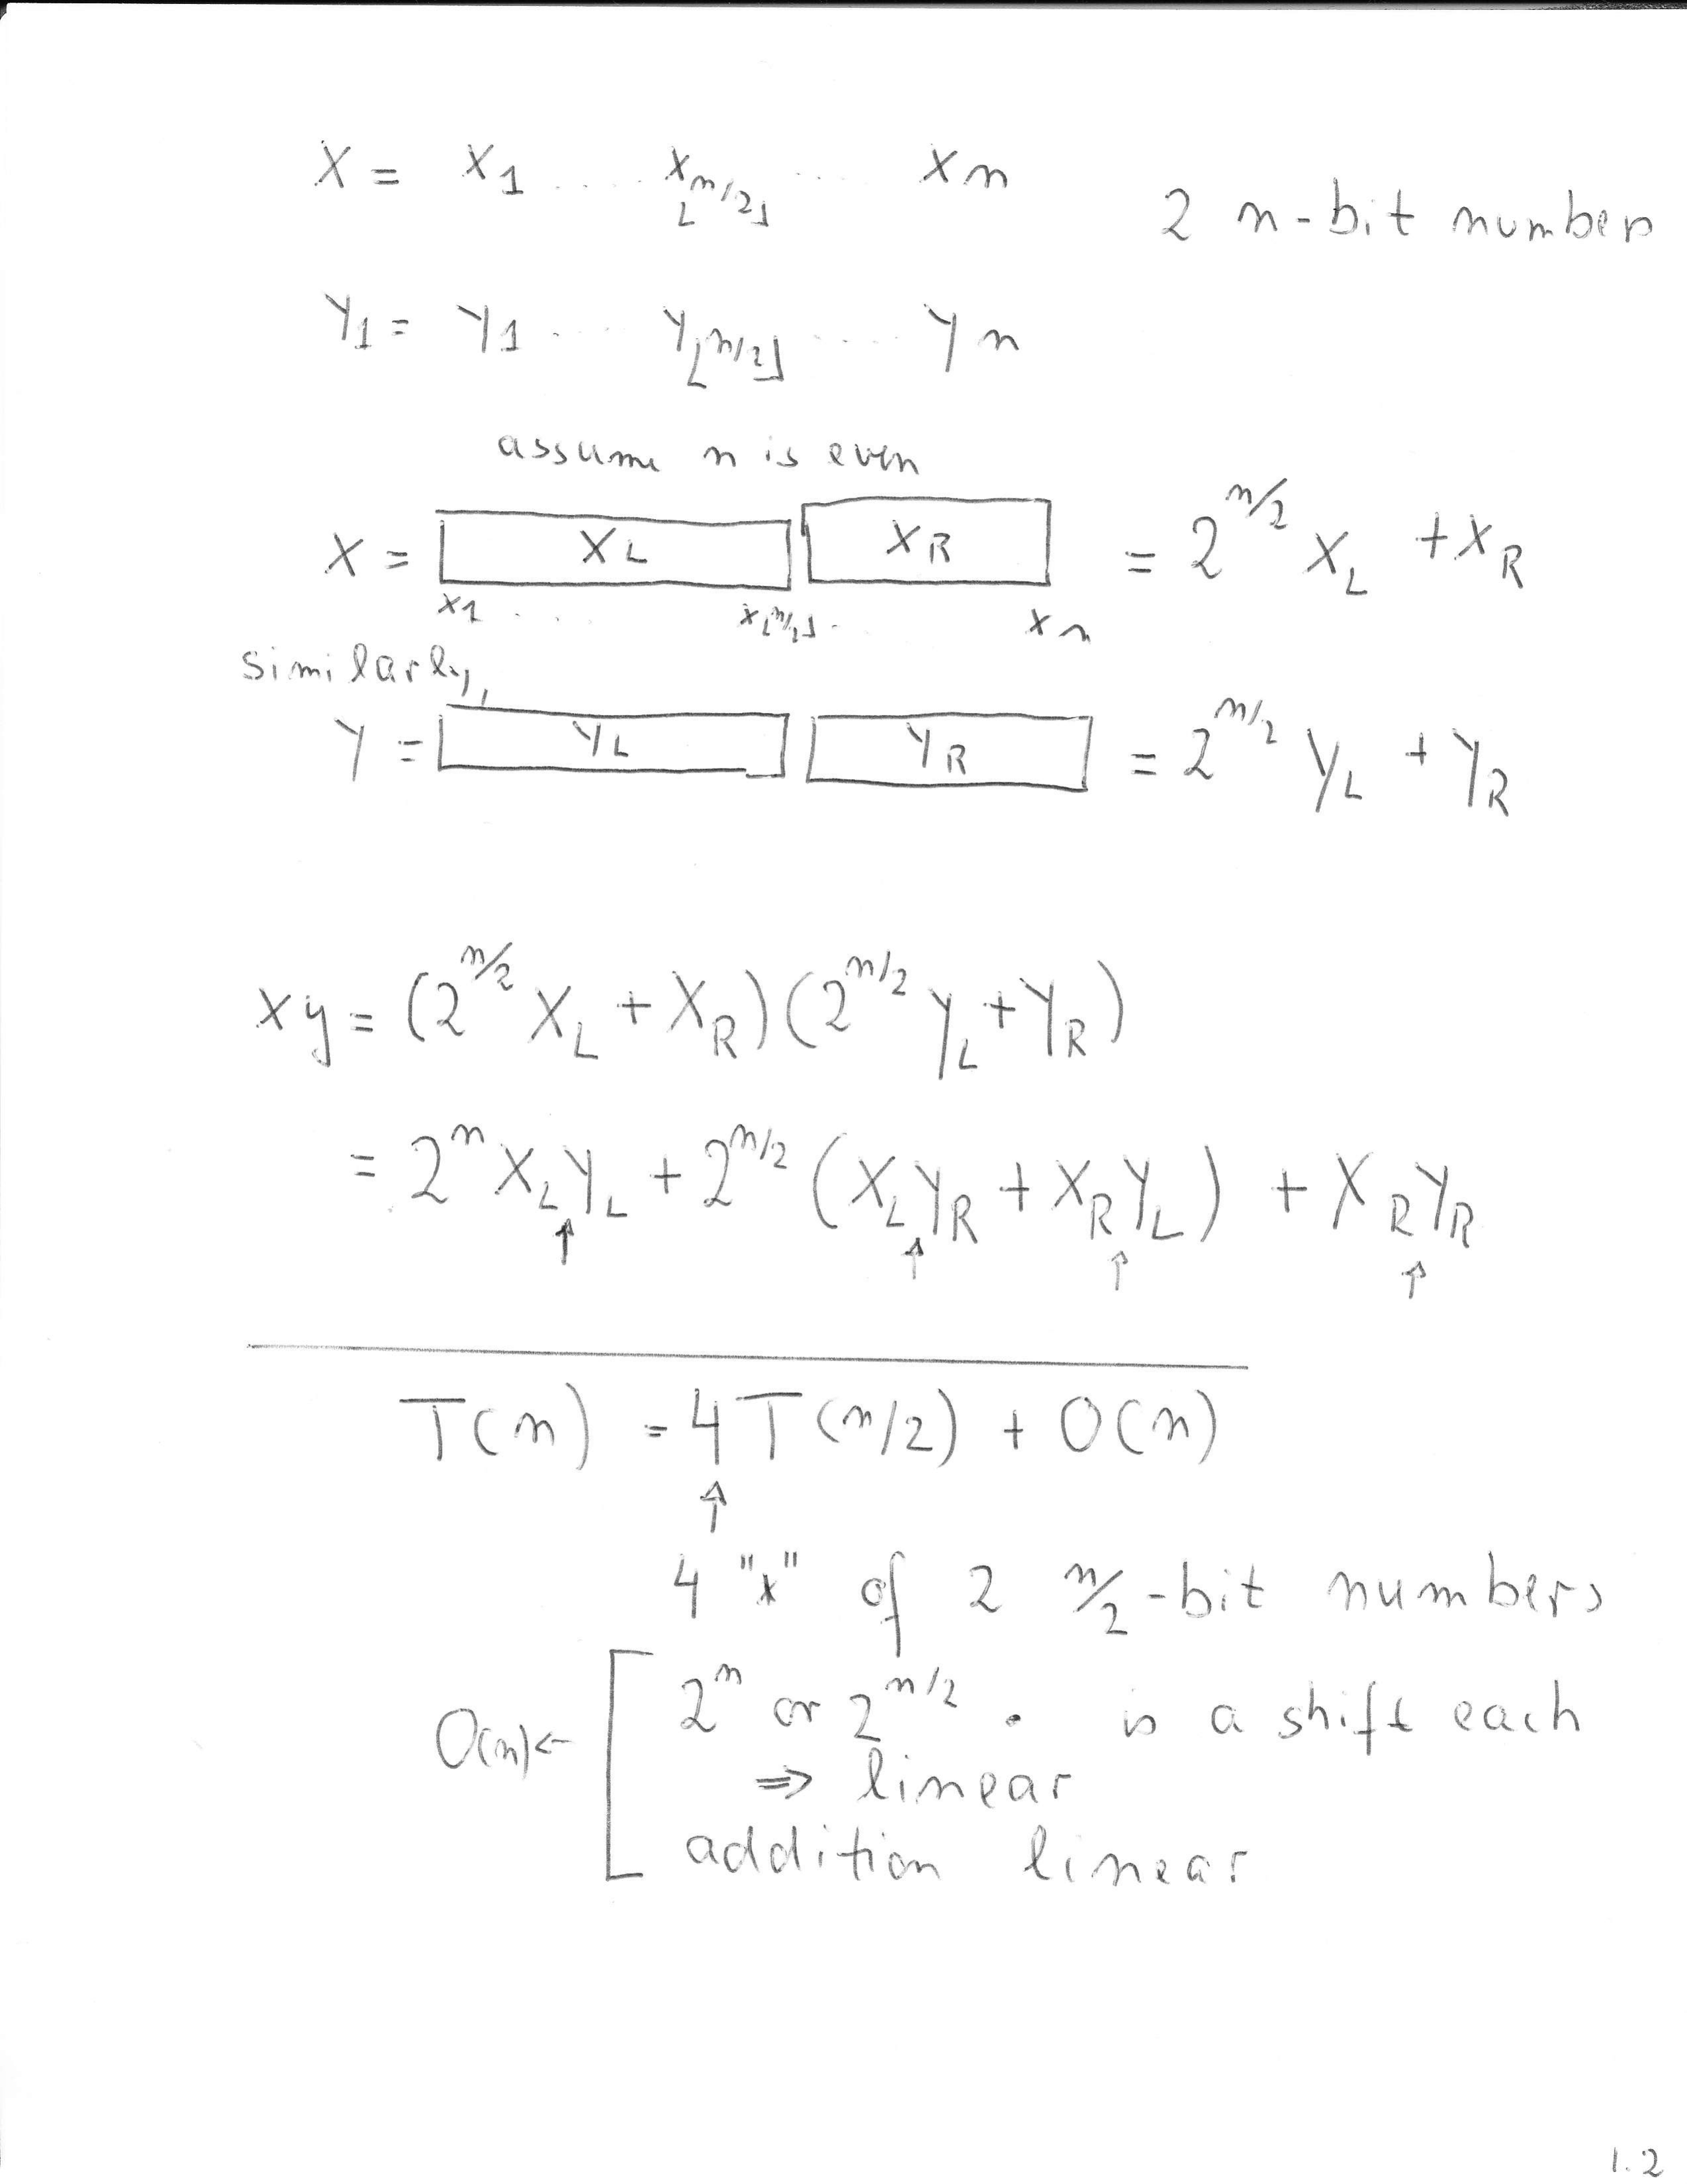 X = X1 .... X⌊n/2⌋ .... Xn
2 n-bit numbers
Y1 = Y1 .... Y⌊n/2⌋ .... Yn
assume n is even
X = XL XR = 2^{n/2} XL + XR
x1 .... x⌊n/2⌋ .... xn
similarly,
Y = YL YR = 2^{n/2} YL + YR
xy = (2^{n/2} XL + XR)(2^{n/2} YL + YR)
= 2^n XL YL + 2^{n/2} (XL YR + XR YL) + XR YR
↑ ↑ ↑ ↑
T(n) = 4T(n/2) + O(n)
↑
4 "x" of 2 n/2-bit numbers
O(n) ← [ 2^n or 2^{n/2} • is a shift each
⇒ linear
addition linear
1.2